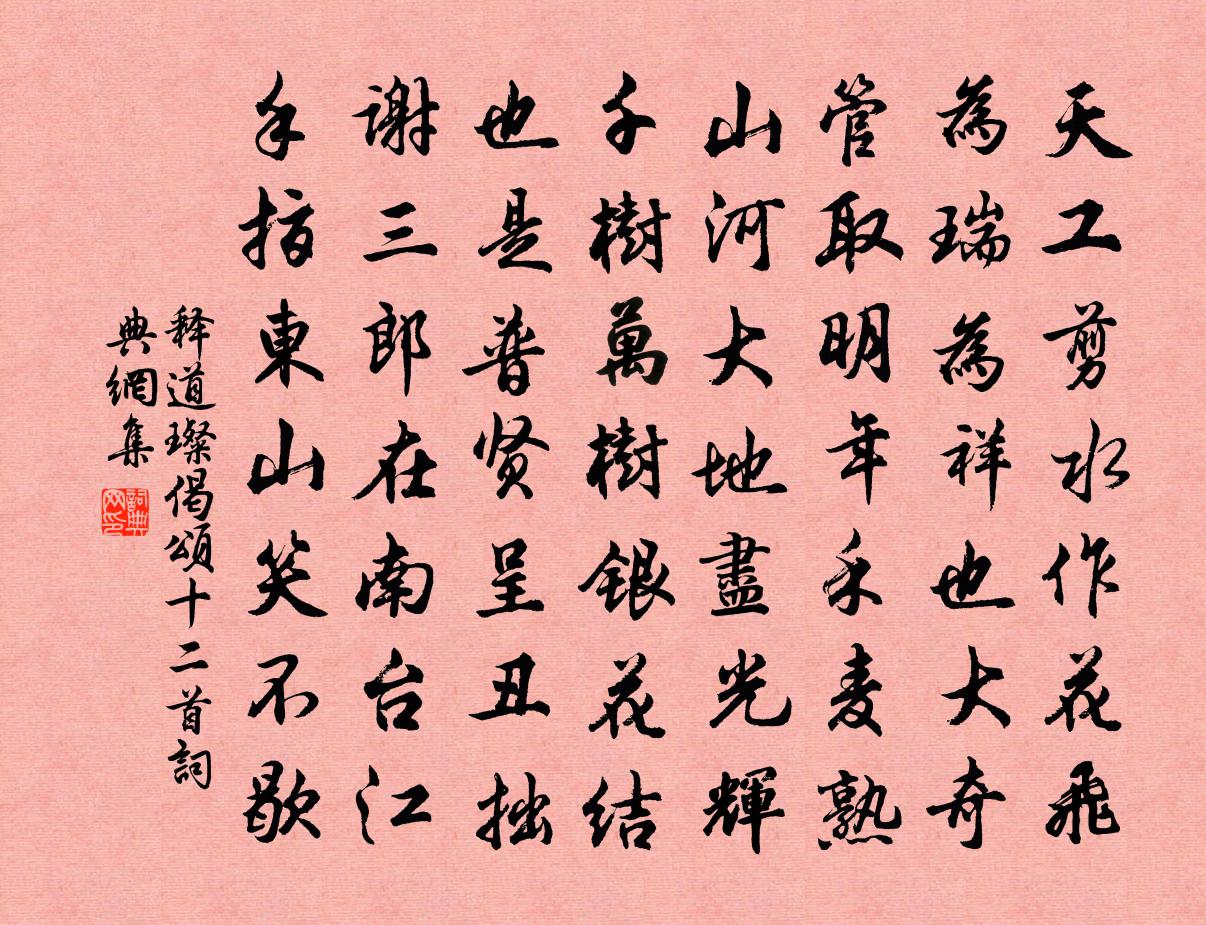 天工剪水作花飛
為瑞為祥也大奇
管取明年禾麦熟
山河大地盡光輝
千樹萬樹銀花结
也是普贤呈丑拙
谢三郎在南台江
手指東山笑不歇
释道璨偈頌十二首詞
典網集
詞典
网印